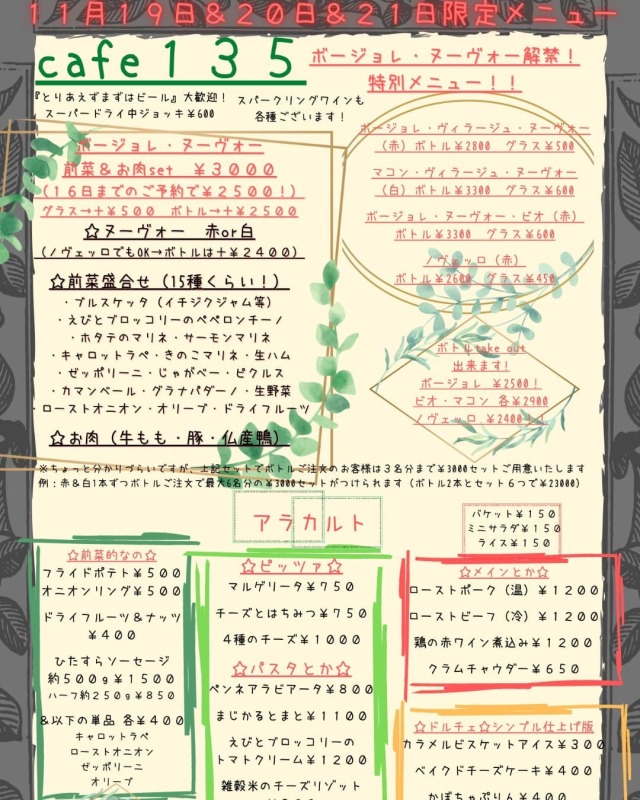 11月19日&20日&21日限定メニュー
cafe135
ボージョレ・ヌーヴォー解禁！
特別メニュー！！
『とりあえずまずはビール』大歓迎！
スーパードライ中ジョッキ¥600
スパークリングワインも
各種ございます！
ボージョレ・ヌーヴォー
前菜&お肉set ¥3000
(16日までのご予約で¥2500！)
グラス→+¥500 ボトル→+¥2500
☆ヌーヴォー 赤or白
(ノヴェッロでもOK→ボトルは+¥2400)
☆前菜盛合せ (15種くらい！)
・ブルスケッタ (イチジクジャム等)
・えびとブロッコリーのペペロンチーノ
・ホタテのマリネ・サーモンマリネ
・キャロットラペ・きのこマリネ・生ハム
・ゼッポリーニ・じゃがべー・ピクルス
・カマンベール・グラナパダーノ・生野菜
・ローストオニオン・オリーブ・ドライフルーツ
☆お肉 (牛もも・豚・仏産鴨)
ボージョレ・ヴィラージュ・ヌーヴォー
(赤) ボトル¥2800 グラス¥500
マコン・ヴィラージュ・ヌーヴォー
(白) ボトル¥3300 グラス¥600
ボージョレ・ヌーヴォー・ビオ (赤)
ボトル¥3300 グラス¥600
ノヴェッロ (赤)
ボトル¥2600 グラス¥450
ボトルtake out
出来ます！
ボージョレ ¥2500！
ビオ・マコン 各¥2900
ノヴェッロ ¥2400！！
※ちょっと分かりづらいですが、上記セットでボトルご注文のお客様は3名分まで¥3000セットご用意いたします
例：赤&白1本ずつボトルご注文で最大6名分の¥3000セットがつけられます (ボトル2本とセット6つで¥23000)
アラカルト
バケット¥150
ミニサラダ¥150
ライス¥150
☆前菜的なの☆
フライドポテト¥500
オニオンリング¥500
ドライフルーツ&ナッツ
¥400
ひたすらソーセージ
約500g¥1500
ハーフ約250g¥850
&以下の単品 各¥400
キャロットラペ
ローストオニオン
ゼッポリーニ
オリーブ
☆ピッツァ☆
マルゲリータ¥750
チーズとはちみつ¥750
4種のチーズ¥1000
☆パスタとか☆
ペンネアラビアータ¥800
まじかるとまと¥1100
えびとブロッコリーの
トマトクリーム¥1200
雑穀米のチーズリゾット
☆メインとか☆
ローストポーク (温) ¥1200
ローストビーフ (冷) ¥1200
鶏の赤ワイン煮込み¥1200
クラムチャウダー¥650
☆ドルチェ☆シンプル仕上げ版
カラメルビスケットアイス¥300
ベイクドチーズケーキ¥400
かぼちゃぷりん¥400